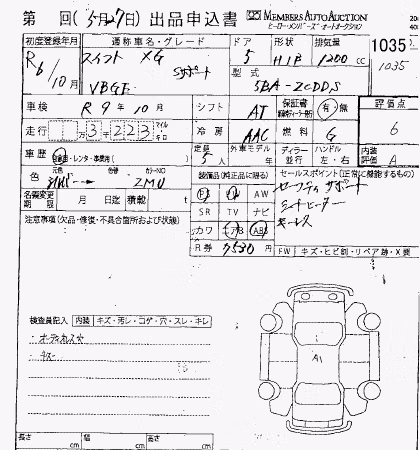 第 回(5月27日)出品申込書 MEMBERS AUTO AUCTION
ヒーロー・メンバーズ・オートオークション
初度登録年月 通称車名・グレード ドア 形状 排気量
R6/10月 スイフト XG 5 H/B 1200cc 1035
Sサポート 1035
型式
VBGE 5BA-ZCDDS
車検 R9年10月 シフト AT 保証書 有・無 評価点
走行 万3千223 マイル・キロ 冷房 AAC 燃料 G 6
車歴 自家用・レンタ・事業用( ) 定員 5人 外車モデル ディラー・並行 ハンドル 左・右 内装評価 A
色 元色 色番 カラーNO ZMU
装備品(純正品に限る) セールスポイント(正常に機能するもの)
PS PW AW セーフティサポート
名義変更期限 月 日迄 積載 t SR TV ナビ シートヒーター
注意事項(欠品・修復・不具合箇所および状態) カワ エアB ABS キーレス
R券 7530円 FW キズ・ヒビ割・リペア跡・X要
検査員記入 内装 キズ・汚レ・コゲ・穴・スレ・キレ
A1
長さ cm 幅 cm 高さ cm